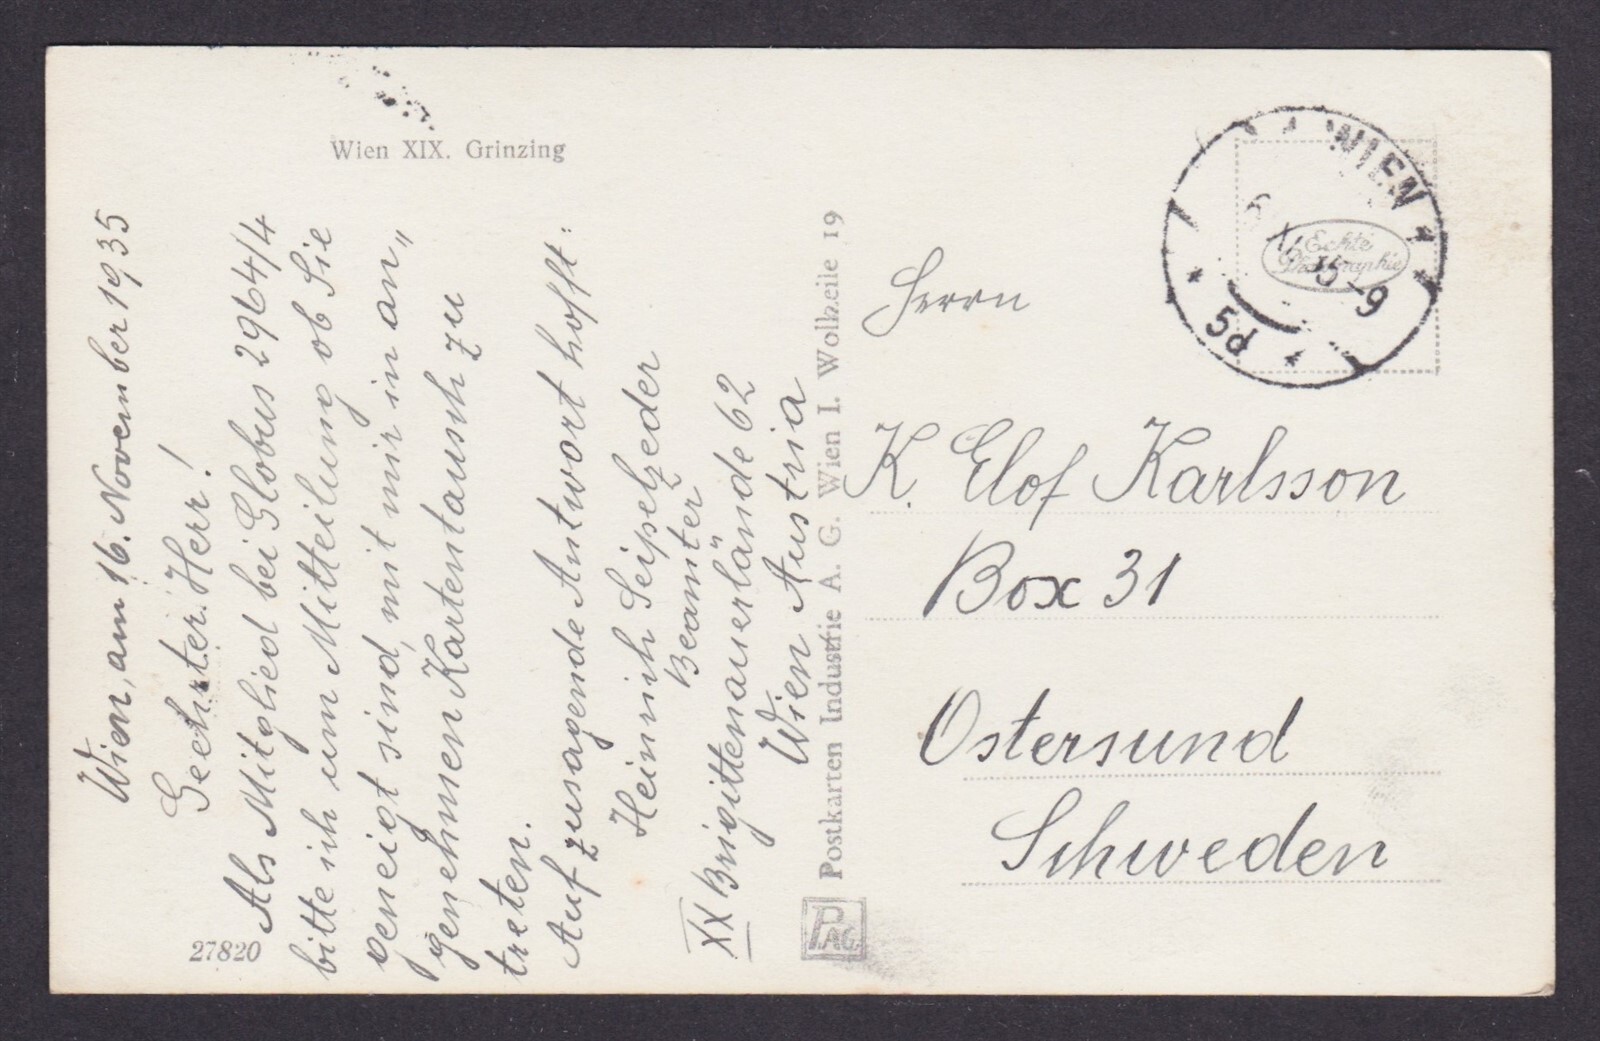 Wien XIX. Grinzing
Wien, am 16. November 1935
Geehrter Herr!
Als Mitglied bei Globus 2964/4
bitte ich um Mitteilung ob Sie
geneigt sind, mit mir in an„
genehmen Kartentausch zu
treten.
Auf zusagende Antwort hofft:
Heinrich Seipelzeder
Beamter
XX Brigittenauerlände 62
Wien Austria
27820
Postkarten Industrie A. G. Wien I. Wollzeile 19
PAG
WIEN
XI 35-9
5d
Echte
Photographie
Herrn
K. Elof Karlsson
Box 31
Ostersund
Schweden